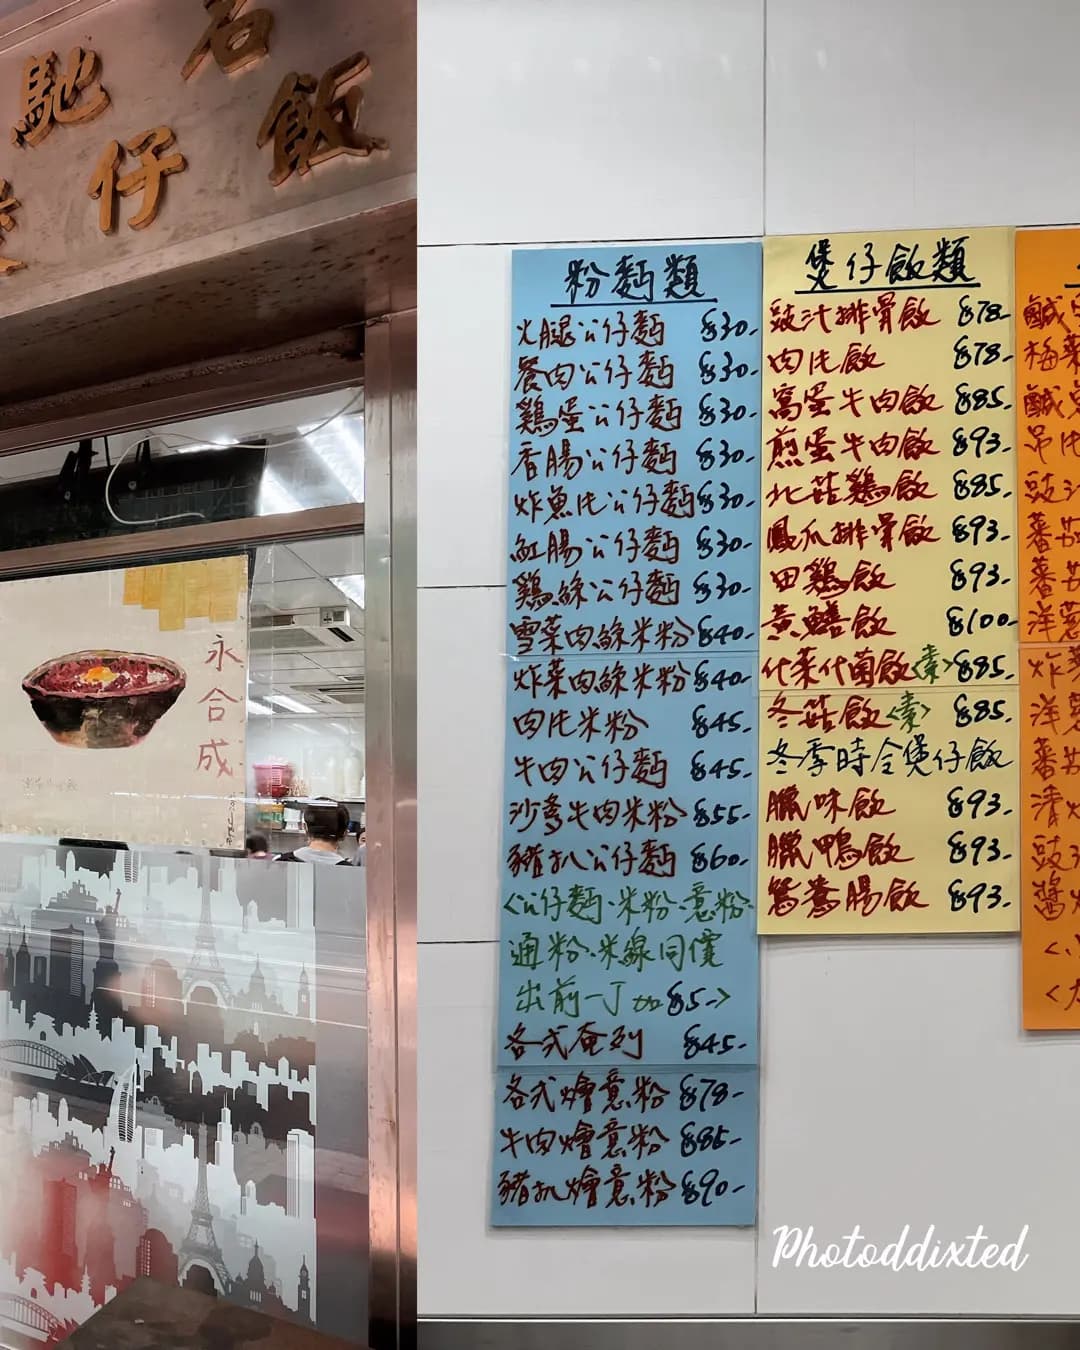 馳名
仔飯
永
合
成
粉麵類
火腿公仔麵 $30-
餐肉公仔麵 $30-
鷄蛋公仔麵 $30-
香腸公仔麵 $30-
炸魚片公仔麵 $30-
紅腸公仔麵 $30-
鷄絲公仔麵 $30-
雪菜肉絲米粉 $40-
炸菜肉絲米粉 $40-
肉片米粉 $45-
牛肉公仔麵 $45-
沙爹牛肉米粉 $55-
豬扒公仔麵 $60-
<公仔麵·米粉·意粉·
通粉·米線同價
出前一丁加$5->
各式奄列 $45-
各式燴意粉 $78-
牛肉燴意粉 $85-
豬扒燴意粉 $90-
煲仔飯類
豉汁排骨飯 $78-
肉片飯 $78-
窩蛋牛肉飯 $85-
煎蛋牛肉飯 $93-
北菇鷄飯 $85-
鳳爪排骨飯 $93-
田鷄飯 $93-
黃鱔飯 $100-
什菜什菌飯<素> $85-
冬菇飯<素> $85-
冬季時令煲仔飯
臘味飯 $93-
臘鴨飯 $93-
鴛鴦腸飯 $93-
鹹
梅菜
鹹
吊片
豉汁
蕃茄
蕃茄
洋蔥
炸菜
洋蔥
蕃茄
清
豉
醬
Photoddixted